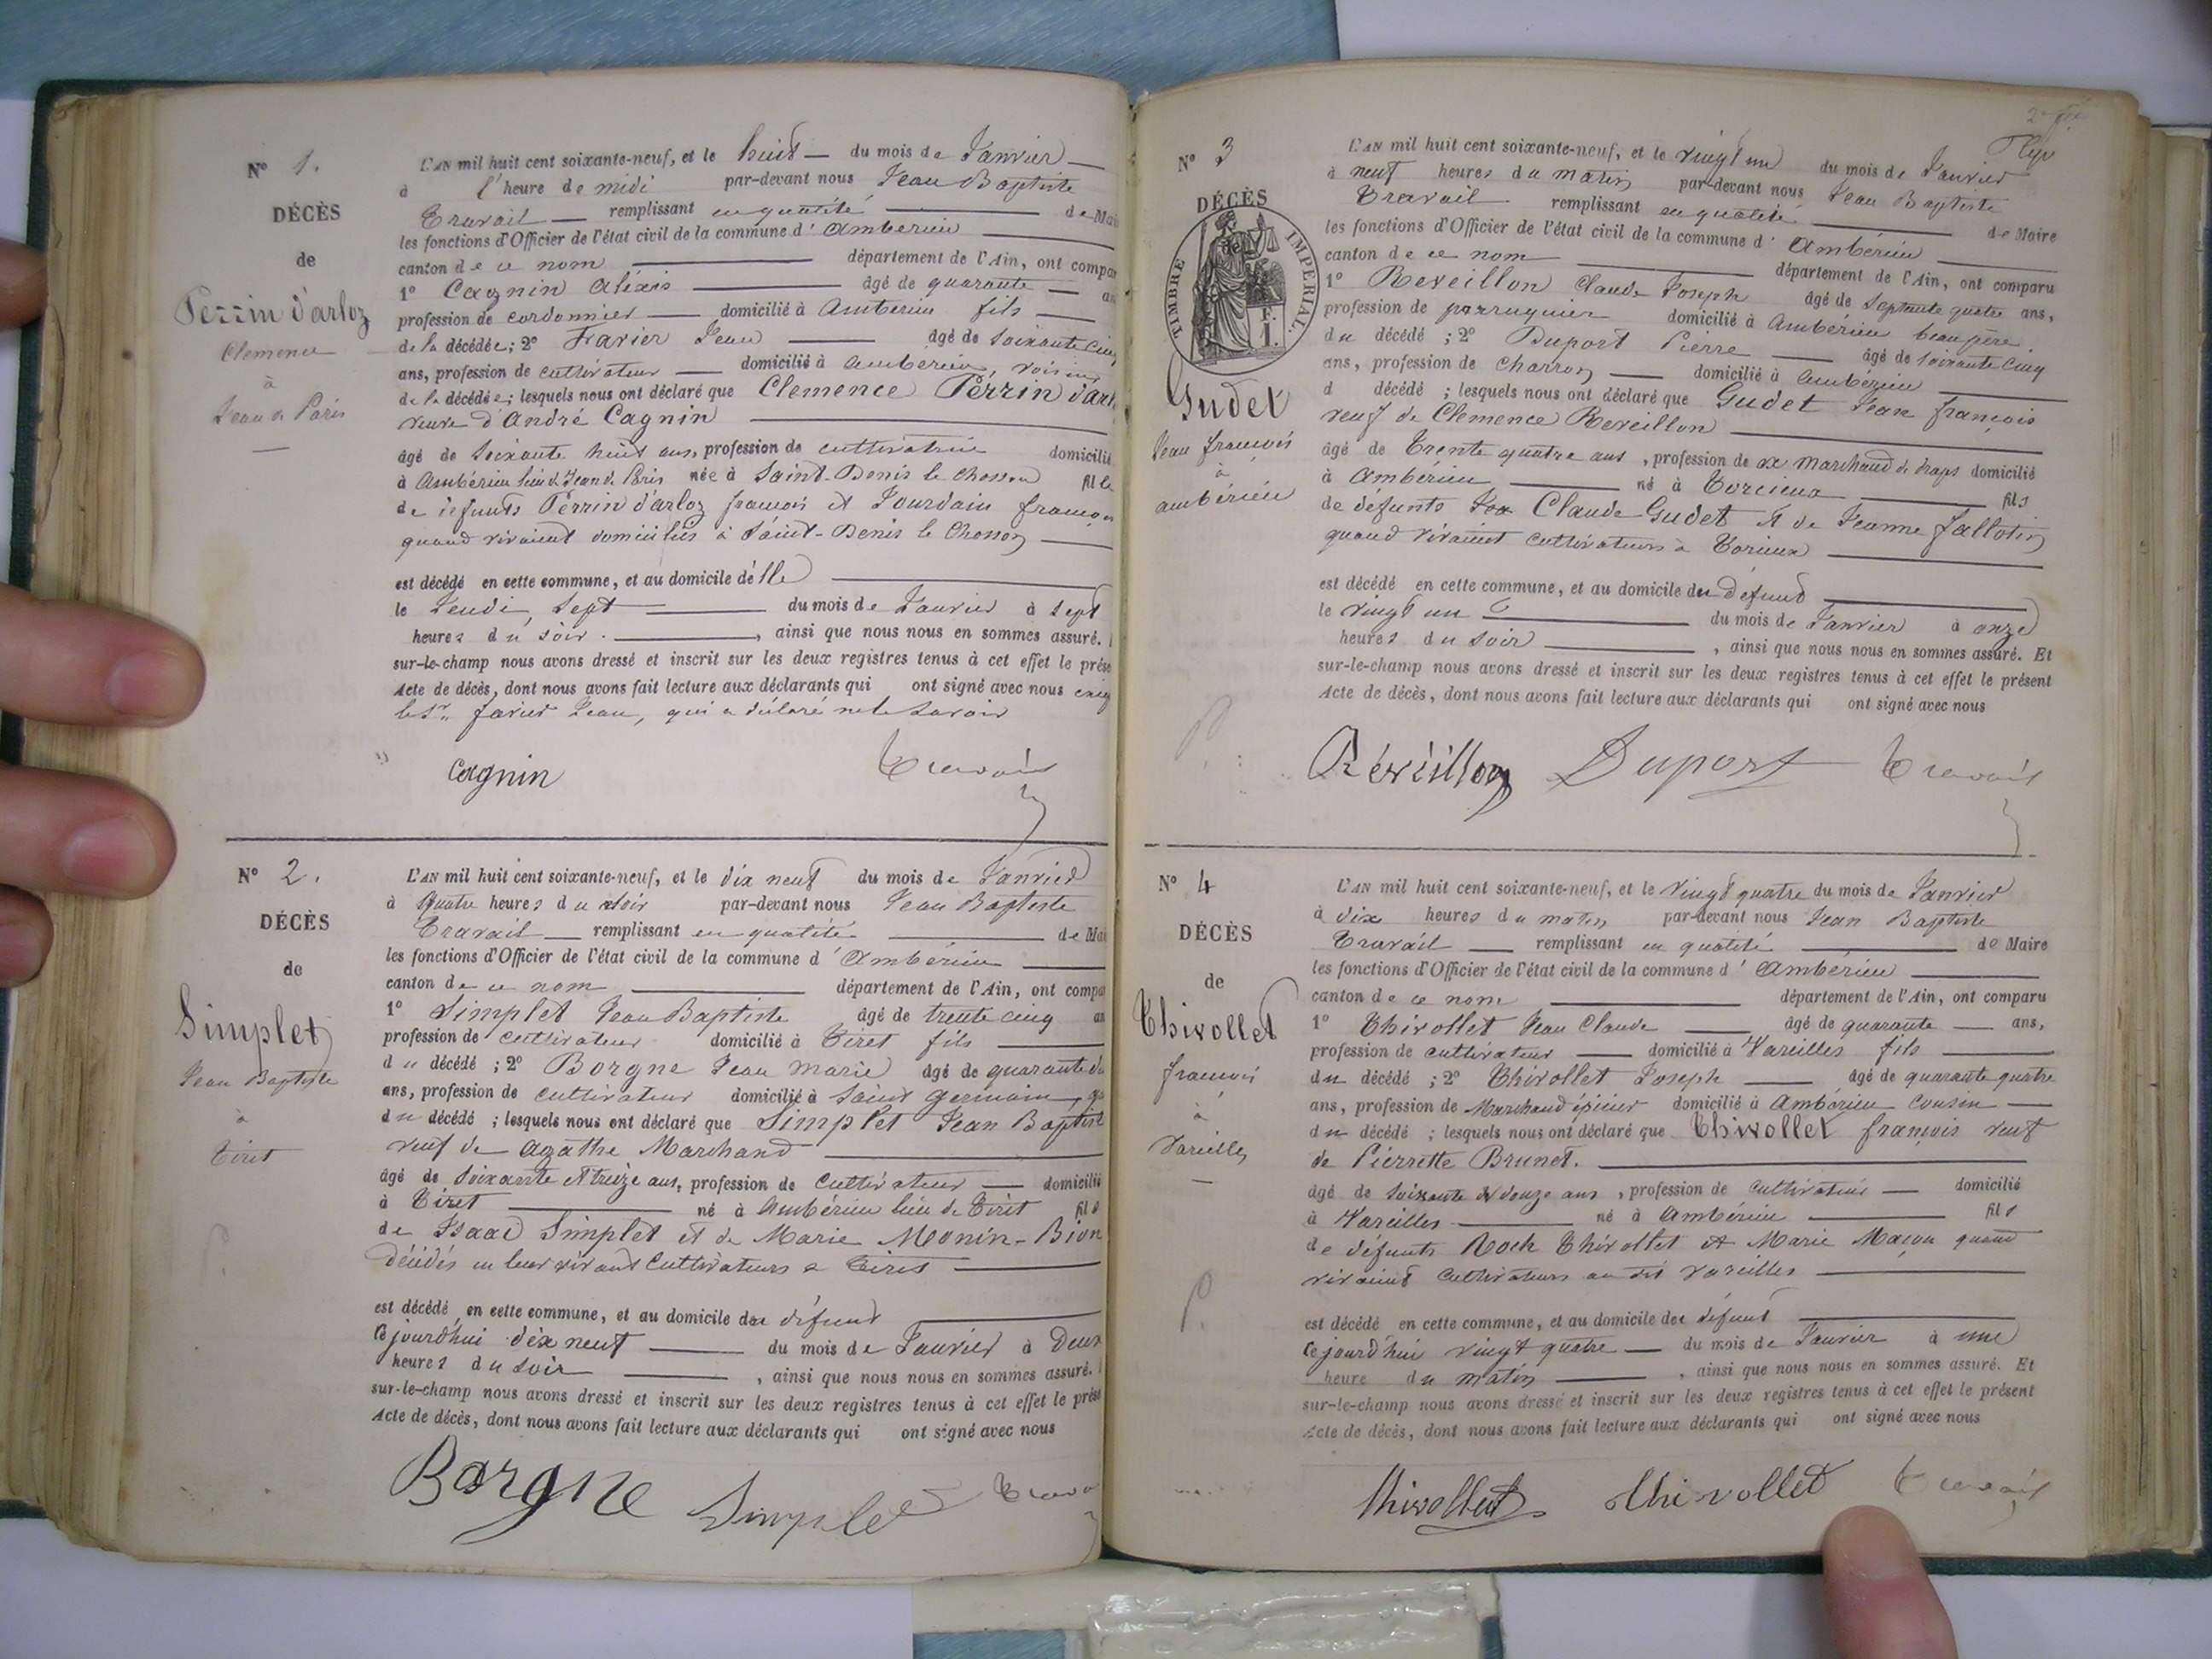 N° 1.
DÉCÈS
de
Perrin d'arloz
Clemence
à
Jean de Paris
L'AN mil huit cent soixante-neuf, et le huit du mois de Janvier
à l'heure de midi par-devant nous Jean Baptiste
Travail remplissant en qualité de Mai
les fonctions d'Officier de l'état civil de la commune d' Ambérieu
canton de ce nom département de l'Ain, ont compar
1° Cagnin Alexis âgé de quarante an
profession de cordonnier domicilié à Ambérieu fils
de la décédée; 2° Favier Jean âgé de soixante cinq
ans, profession de cultivateur domicilié à Ambérieu, voisin
de la décédée; lesquels nous ont déclaré que Clemence Perrin d'arl
veuve d'André Cagnin
âgé de soixante huit ans, profession de cultivatrice domicilié
à Ambérieu lieu de Jean de Paris née à Saint-Denis le Chosson fille
de défunts Perrin d'arloz françois et Jourdain françoi
quand vivaient domiciliés à Saint-Denis le Chosson
est décédé en cette commune, et au domicile d'elle
le Jeudi, sept du mois de Janvier à sept
heures du soir, ainsi que nous nous en sommes assuré.
sur-le-champ nous avons dressé et inscrit sur les deux registres tenus à cet effet le prése
Acte de décès, dont nous avons fait lecture aux déclarants qui ont signé avec nous
le Sr. favier Jean, qui a déclaré ne le savoir
Cagnin Travail
N° 2.
DÉCÈS
de
Simplet
Jean Baptiste
à
Tiret
L'AN mil huit cent soixante-neuf, et le dix neuf du mois de Janvier
à quatre heures du soir par-devant nous Jean Baptiste
Travail remplissant en qualité de Mai
les fonctions d'Officier de l'état civil de la commune d' Ambérieu
canton de ce nom département de l'Ain, ont compa
1° Simplet Jean Baptiste âgé de trente cinq an
profession de cultivateur domicilié à Tiret fils
du décédé; 2° Borgne Jean Marie âgé de quarante
ans, profession de cultivateur domicilié à Saint Germain,
du décédé; lesquels nous ont déclaré que Simplet Jean Baptist
veuf de Agathe Marchand
âgé de soixante et treize ans, profession de cultivateur domicilié
à Tiret né à Ambérieu lieu de Tiret fils
de Isaac Simplet et de Marie Monin-Bion
décédés en leur vivant Cultivateurs à Tiret
est décédé en cette commune, et au domicile du défunt
Cejourd'hui dix neuf du mois de Janvier à Deux
heures du soir, ainsi que nous nous en sommes assuré.
sur-le-champ nous avons dressé et inscrit sur les deux registres tenus à cet effet le prése
Acte de décès, dont nous avons fait lecture aux déclarants qui ont signé avec nous
Borgne Simplet Trava
N° 3
DÉCÈS
de
TIMBRE IMPÉRIAL
F.
1.
Gudet
Jean françois
à
ambérieu
L'AN mil huit cent soixante-neuf, et le vingt un du mois de Janvier
à neuf heures du matin par-devant nous Jean Baptiste
Travail remplissant en qualité de Maire
les fonctions d'Officier de l'état civil de la commune d' Ambérieu
canton de ce nom département de l'Ain, ont comparu
1° Reveillon Claude Joseph âgé de septante quatre ans,
profession de perruquier domicilié à Ambérieu beau père
du décédé; 2° Duport Pierre âgé de soixante cinq
ans, profession de charron domicilié à Ambérieu
d décédé; lesquels nous ont déclaré que Gudet Jean françois
veuf de Clemence Reveillon
âgé de Trente quatre ans, profession de ex Marchand de draps domicilié
à Ambérieu né à Torcieux fils
de défunts Claude Gudet et de Jeanne Jallotin
quand vivaient cultivateurs à Torcieux
est décédé en cette commune, et au domicile du défunt
le vingt un du mois de Janvier à onze
heures du soir, ainsi que nous nous en sommes assuré. Et
sur-le-champ nous avons dressé et inscrit sur les deux registres tenus à cet effet le présent
Acte de décès, dont nous avons fait lecture aux déclarants qui ont signé avec nous
Réveillon Duport Travail
N° 4
DÉCÈS
de
Thivollet
francois
à
Vareilles
L'AN mil huit cent soixante-neuf, et le vingt quatre du mois de Janvier
à dix heures du matin par-devant nous Jean Baptiste
Travail remplissant en qualité de Maire
les fonctions d'Officier de l'état civil de la commune d' Ambérieu
canton de ce nom département de l'Ain, ont comparu
1° Thivollet Jean Claude âgé de quarante ans,
profession de cultivateur domicilié à Vareilles fils
du décédé; 2° Thivollet Joseph âgé de quarante quatre
ans, profession de Marchand épicier domicilié à Ambérieu Cousin
du décédé; lesquels nous ont déclaré que Thivollet françois veuf
de Pierrette Brunet.
âgé de soixante et douze ans, profession de cultivateur domicilié
à Vareilles né à Ambérieu fils
de défunts Roch Thivollet et Marie Maçon quand
vivaient cultivateurs au dit Vareilles
est décédé en cette commune, et au domicile du défunt
Cejourd'hui vingt quatre du mois de Janvier à une
heure du matin, ainsi que nous nous en sommes assuré. Et
sur-le-champ nous avons dressé et inscrit sur les deux registres tenus à cet effet le présent
Acte de décès, dont nous avons fait lecture aux déclarants qui ont signé avec nous
Thivollet Thivollet Travail